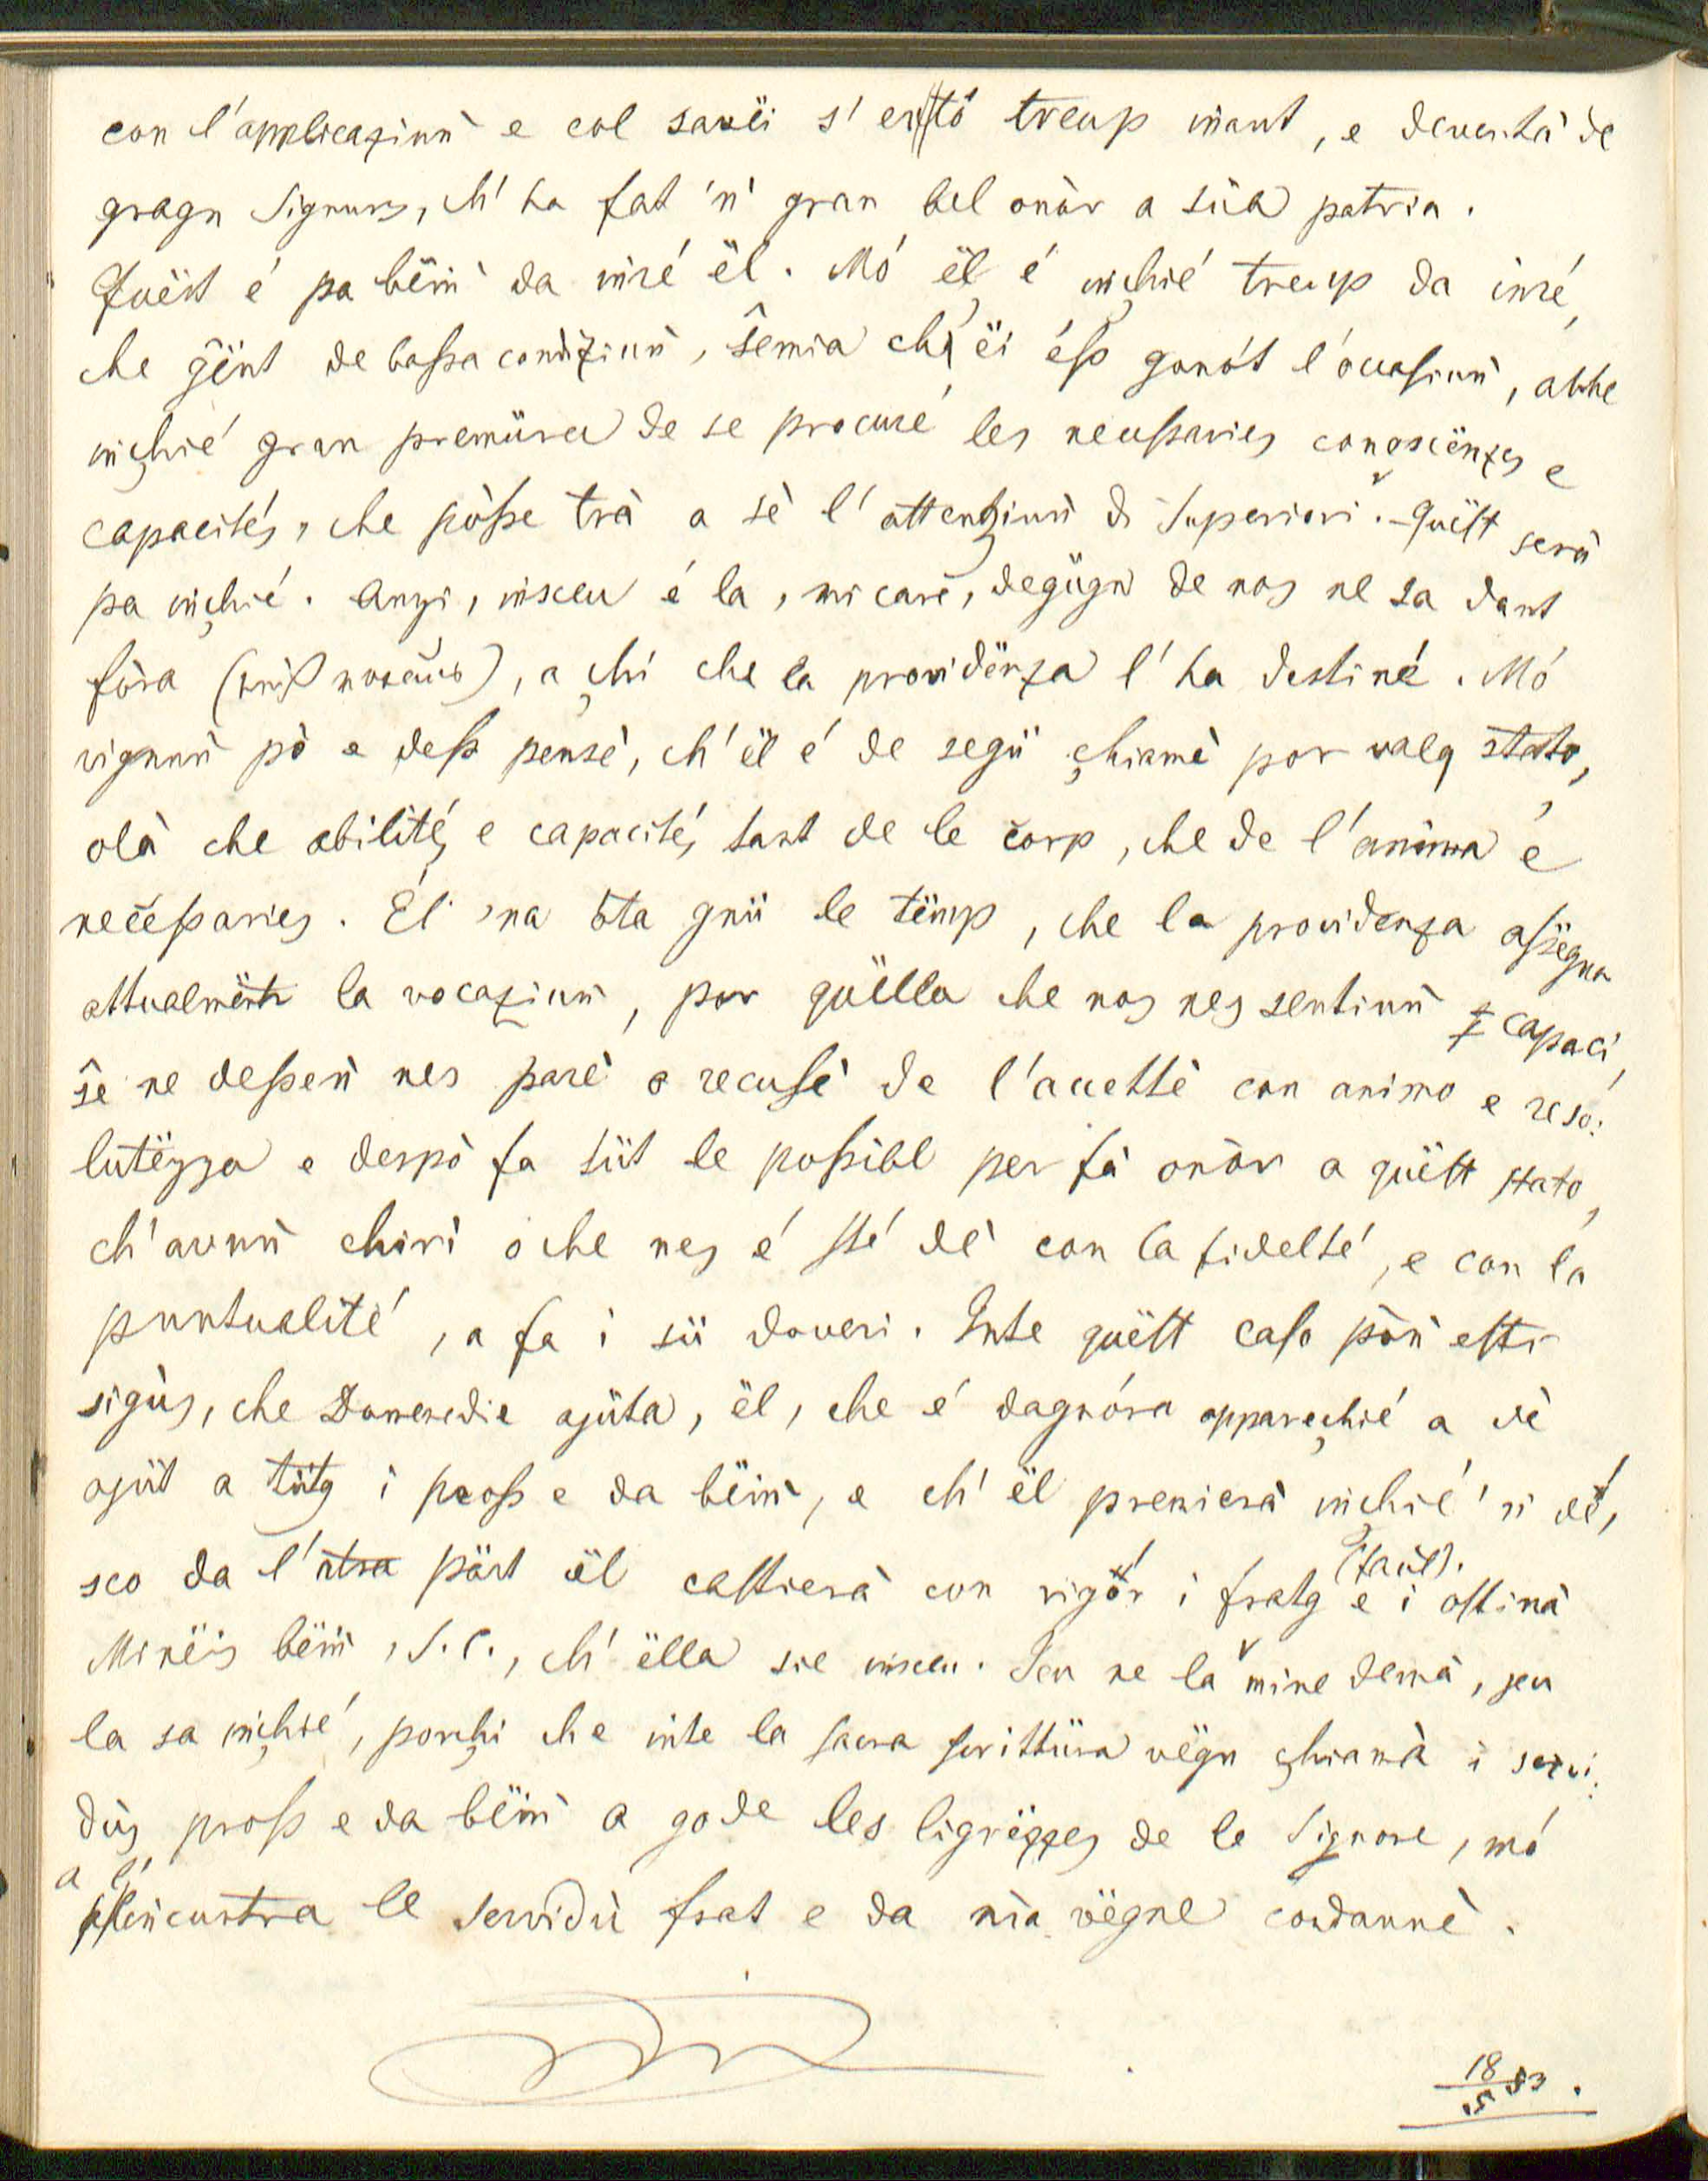 con l'applicaziuǹ e col savëi s' er tö treup inant, e deventà de
gragn Signurs, ch' ha fat 'n' gran bel onòr a süa patria.
Quëst é pa bëiǹ da inré ël. Mó ël é inçhié treup da inré,
che ĝënt de bassa condiziuǹ, ŝemia ch' ëi éss gonót l'òccasiuǹ, abbe
inçhié gran premüra de se procuré les necessaries conoscënzes e
capacités, che pòsse trà a sè l' attenziuǹ di Superiori. Quëst serà
pa inçhié. Anzi, insceu é la, mi care, degügn de nos ne sa dant
fòra, a çhi che la providënza l' ha destiné. Mó
vignuǹ pò e dess pensè, ch' ël é de segü çhiamè por valq stato,
olà che abilités e capacités tant de le corp, che de l'anima é
necessaries. Él 'na òta gnü le tëmp, che la providenza assëgna
attualmënte la vocaziuǹ, por quëlla che nos nes sentiuǹ capaci,
ŝe ne desseǹ nes parè o recusè de l'accettè con animo e reso:
lutëzza e despò fa tüt le possibl per fà onòr a quëst stato,
ch' avuǹ chirì o che nes é sté dè con la fidelté, e con la
puntualité, a fa i sü doveri. Inte quëst caso pòǹ ester
sigùs, che Domenedie ajüta, ël, che é dagnóra appareçhié a dè
ajüt a tütg i pross e da bëiǹ, e ch' ël premierà inchié 'n dé,
sco da l'atra pärt ël castierà con rigór i fratg e i ostinà
Minëis bëiǹ, S. C., ch' ëlla sie insceu. Jeu ne la mine demà, jeu
la sa inçhié, porçhi che inte la sacra scrittüra vëgn çhiamà i servi:
dùs pross e da bëiǹ a gode les ligrëzzes de le Signore, mó
a l' incuntra le servidù frat e da nia vëgne condannè.
18/5 53.